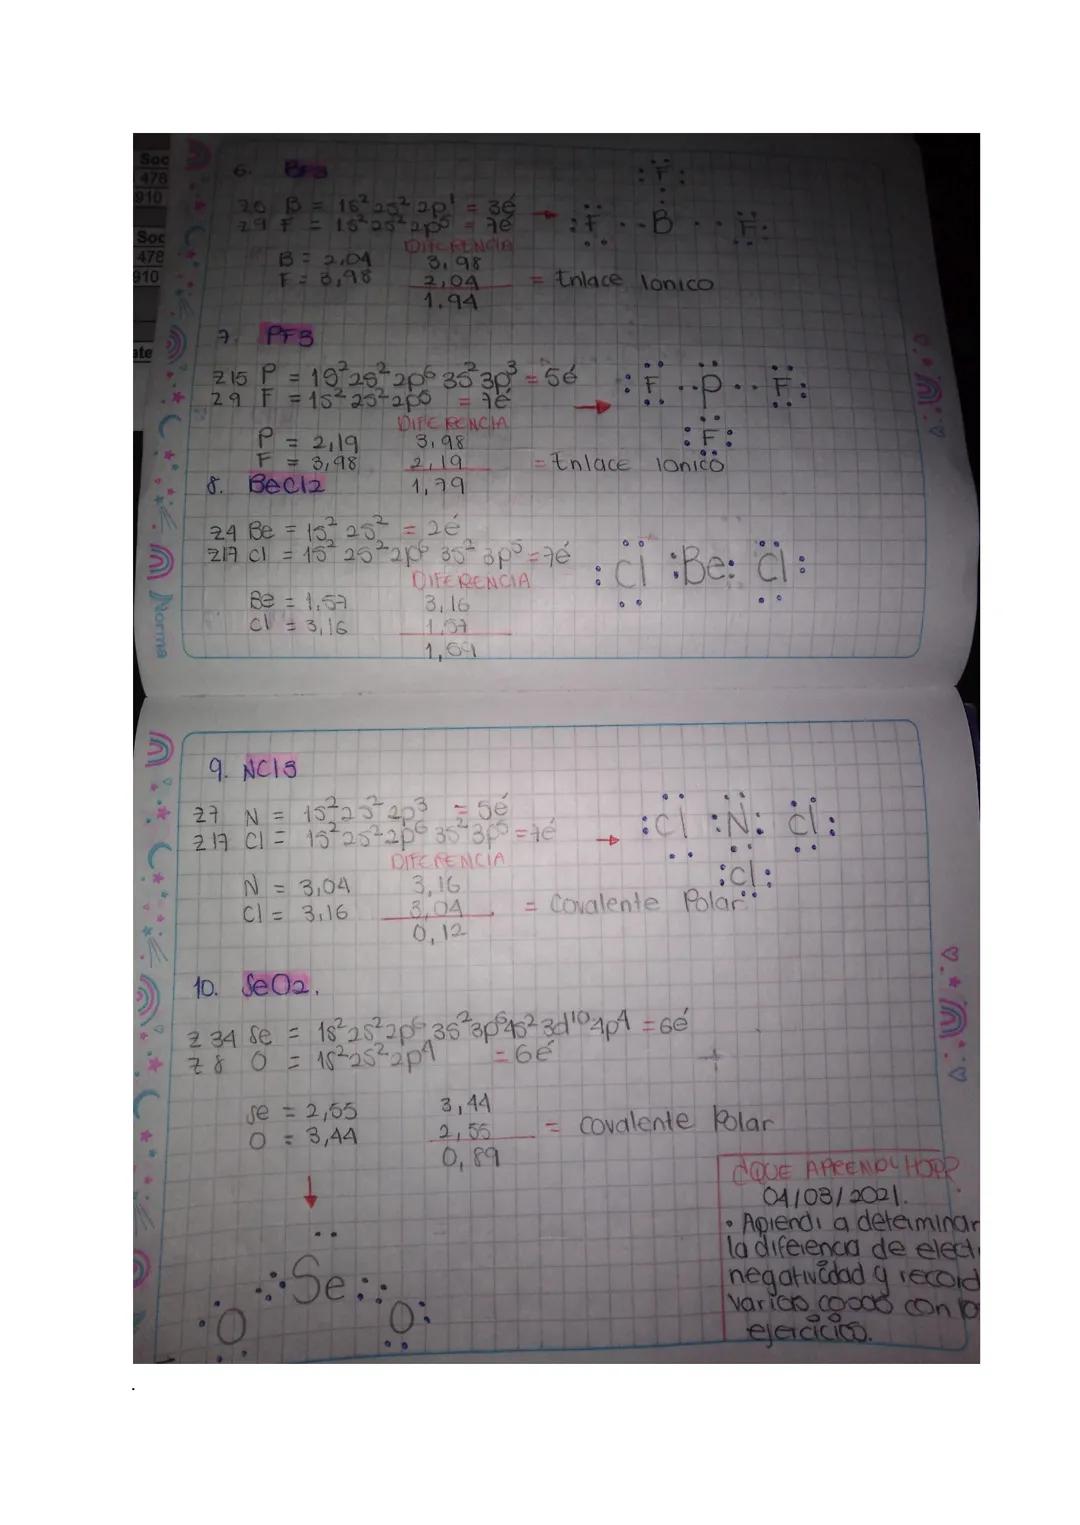 Soc
478
910
Soc
478
910
ate
6. BF3
B = 1s² 2s² 2p¹ = 3é
Z9 F = 1s² 2s² 2p⁵ = 7é
:F:
:F · · B · · F:
DIFERENCIA
B = 2,04 3,98
F = 3,98 2,04 = Enlace Ionico
1.94
7. PF3
Z15 P = 1s² 2s² 2p⁶ 3s² 3p³ = 5é
Z9 F = 1s² 2s² 2p⁵ = 7é
:F ·· P ·· F:
:F:
DIFERENCIA
P = 2,19 3,98
F = 3,98 2,19 = Enlace ionico
1,79
8. BeCl2
Z4 Be = 1s² 2s² = 2é
Z17 Cl = 1s² 2s² 2p⁶ 3s² 3p⁵ = 7é
:Cl :Be: Cl:
DIFERENCIA
Be = 1,57 3,16
Cl = 3,16 1,57
Norma
9. NCl3
Z7 N = 1s² 2s² 2p³ = 5é
Z17 Cl = 1s² 2s² 2p⁶ 3s² 3p⁵ = 7é
:Cl :N: Cl:
:Cl:
DIFERENCIA
N = 3,04 3,16
Cl = 3,16 3,04 = Covalente Polar
0,12
10. SeO2.
Z 34 Se = 1s² 2s² 2p⁶ 3s² 3p⁶ 4s² 3d¹⁰ 4p⁴ = 6é
Z 8 O = 1s² 2s² 2p⁴ = 6é
Se = 2,55 3,44
O = 3,44 2,55 = covalente Polar
0,89
Se
O O
04/03/2021.
• Aprendi a determinar
la diferencia de elect
negatividad y record
varias cosas con
ejercicios.